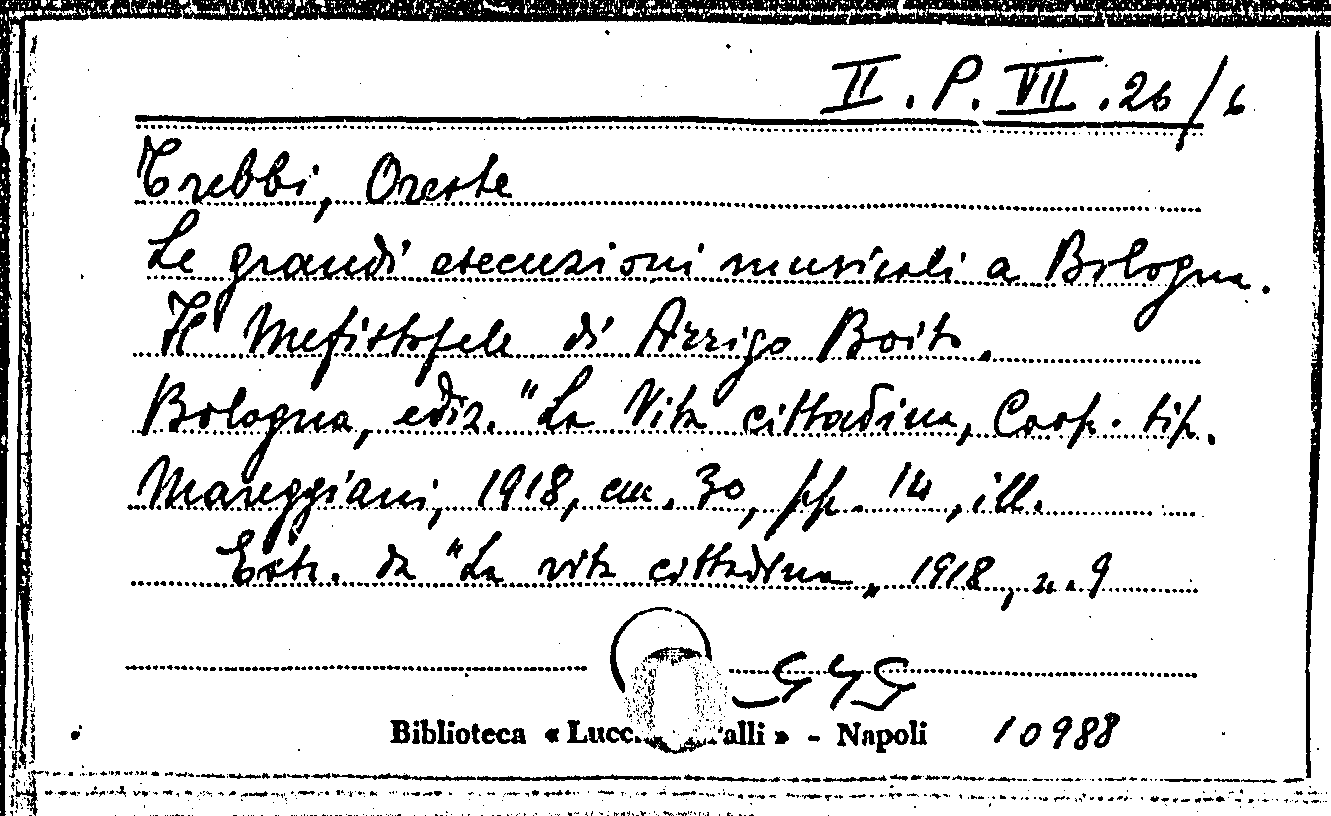 II. P. VII. 26/6
Trebbi, Oreste
Le grandi esecuzioni musicali a Bologna.
Il Mefistofele di Arrigo Boito.
Bologna, ediz. "La Vita cittadina, Coop. tip.
Mareggiani, 1918, cm. 30, pp. 14, ill.
Estr. da "La vita cittadina„ 1918, n. 9
Biblioteca « Lucc alli » - Napoli 10988